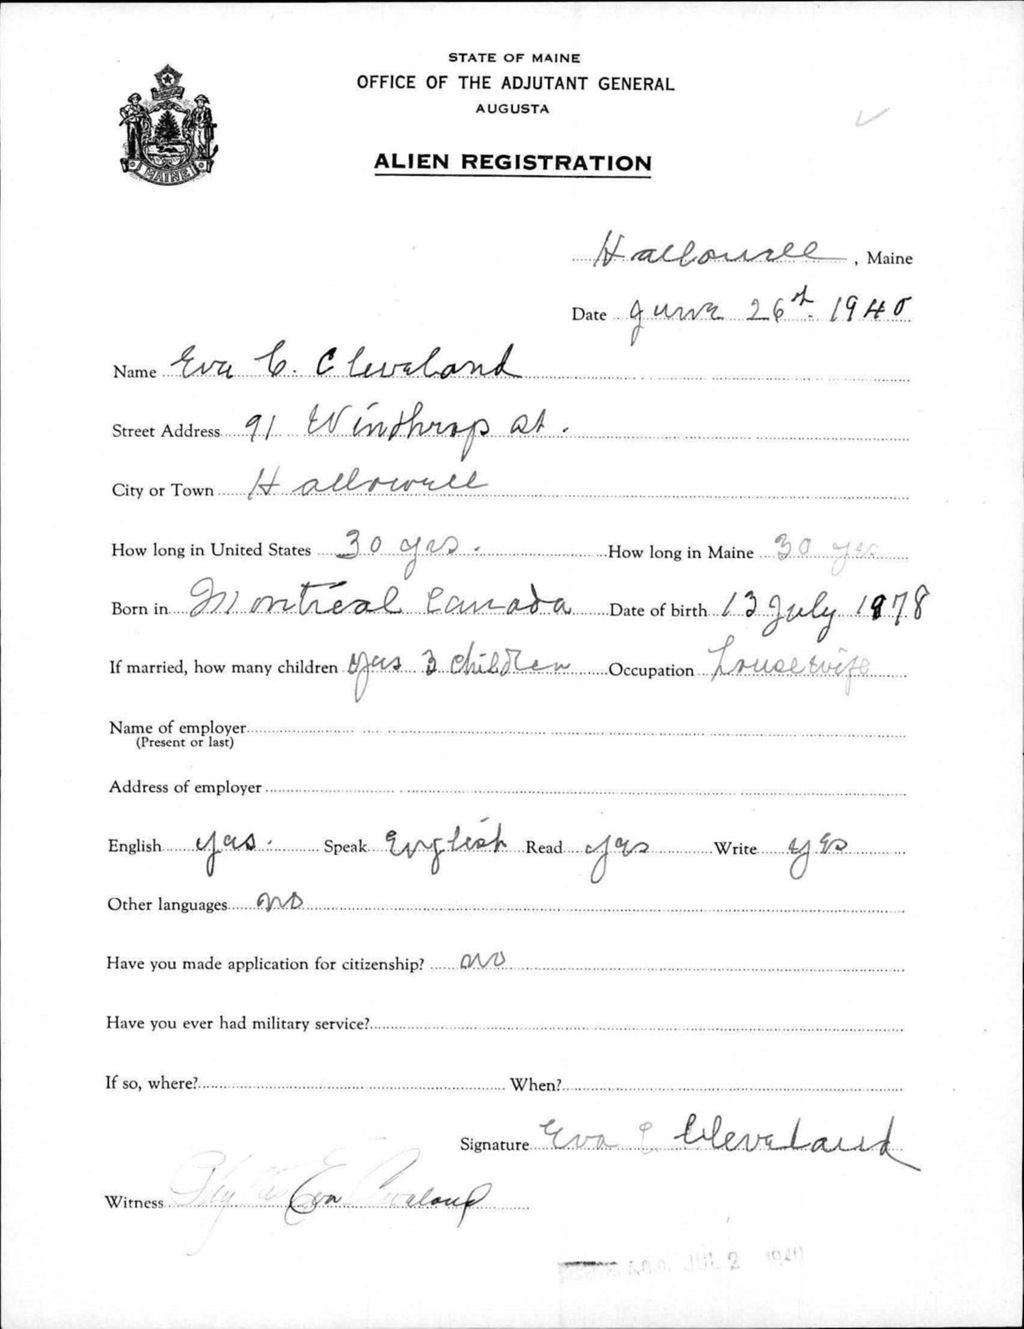 STATE OF MAINE
OFFICE OF THE ADJUTANT GENERAL
AUGUSTA
MAINE
ALIEN REGISTRATION
Hallowell, Maine
Date June 26th 1940
Name Eva C. Cleveland
Street Address 91 Winthrop St.
City or Town Hallowell
How long in United States 30 yrs. How long in Maine 30 yrs
Born in Montreal Canada Date of birth 13 July 1878
If married, how many children yes 3 children Occupation housewife
Name of employer
(Present or last)
Address of employer
English yes. Speak English Read yes Write yes
Other languages no
Have you made application for citizenship? no
Have you ever had military service?
If so, where? When?
Signature Eva C Cleveland
Witness Eva
JUL 2 1940